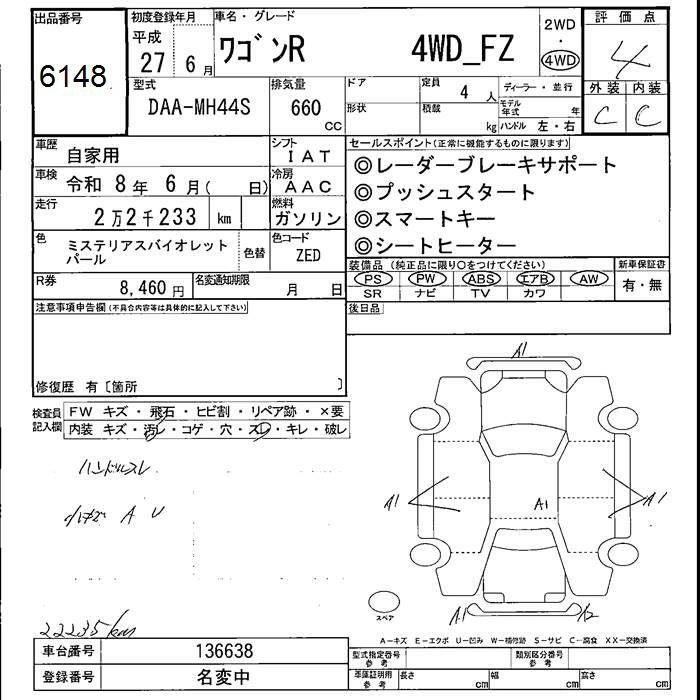 出品番号
6148
初度登録年月
平成
27 6月
車名・グレード
ワゴンR 4WD_FZ
2WD
・
4WD
評価点
4
外装 内装
C C
型式
DAA-MH44S
排気量
660
cc
ドア
形状
定員
4 人
積載
kg
ディーラー・並行
モデル年式 年
ハンドル 左・右
車歴
自家用
シフト
IAT
車検
令和 8年 6月( 日)
冷房
AAC
走行
2万2千233 km
燃料
ガソリン
色
ミステリアスバイオレットパール
色替
色コード
ZED
R券
8,460円
名変通知期限
月 日
セールスポイント(正常に機能するものに限ります)
◎レーダーブレーキサポート
◎プッシュスタート
◎スマートキー
◎シートヒーター
装備品(純正品に限り○をつけてください)
PS PW ABS エアB AW
SR ナビ TV カワ
新車保証書
有・無
注意事項申告欄(不具合内容等は具体的に記入して下さい)
後日品
修復歴 有〔箇所 〕
検査員記入欄
FW キズ・飛石・ヒビ割・リペア跡・×要
内装 キズ・汚レ・コゲ・穴・スレ・キレ・破レ
ハンドルスレ
A U
22235km
A1
A1
A1
A1
A1
A2
スペア
A-キズ E-エクボ U-凹み W-補修跡 S-サビ C-腐食 XX-交換済
車台番号
136638
登録番号
名変中
型式指定番号
参考
類別区分番号
参考
車庫証明用
参考
長さ cm
幅 cm
高さ cm